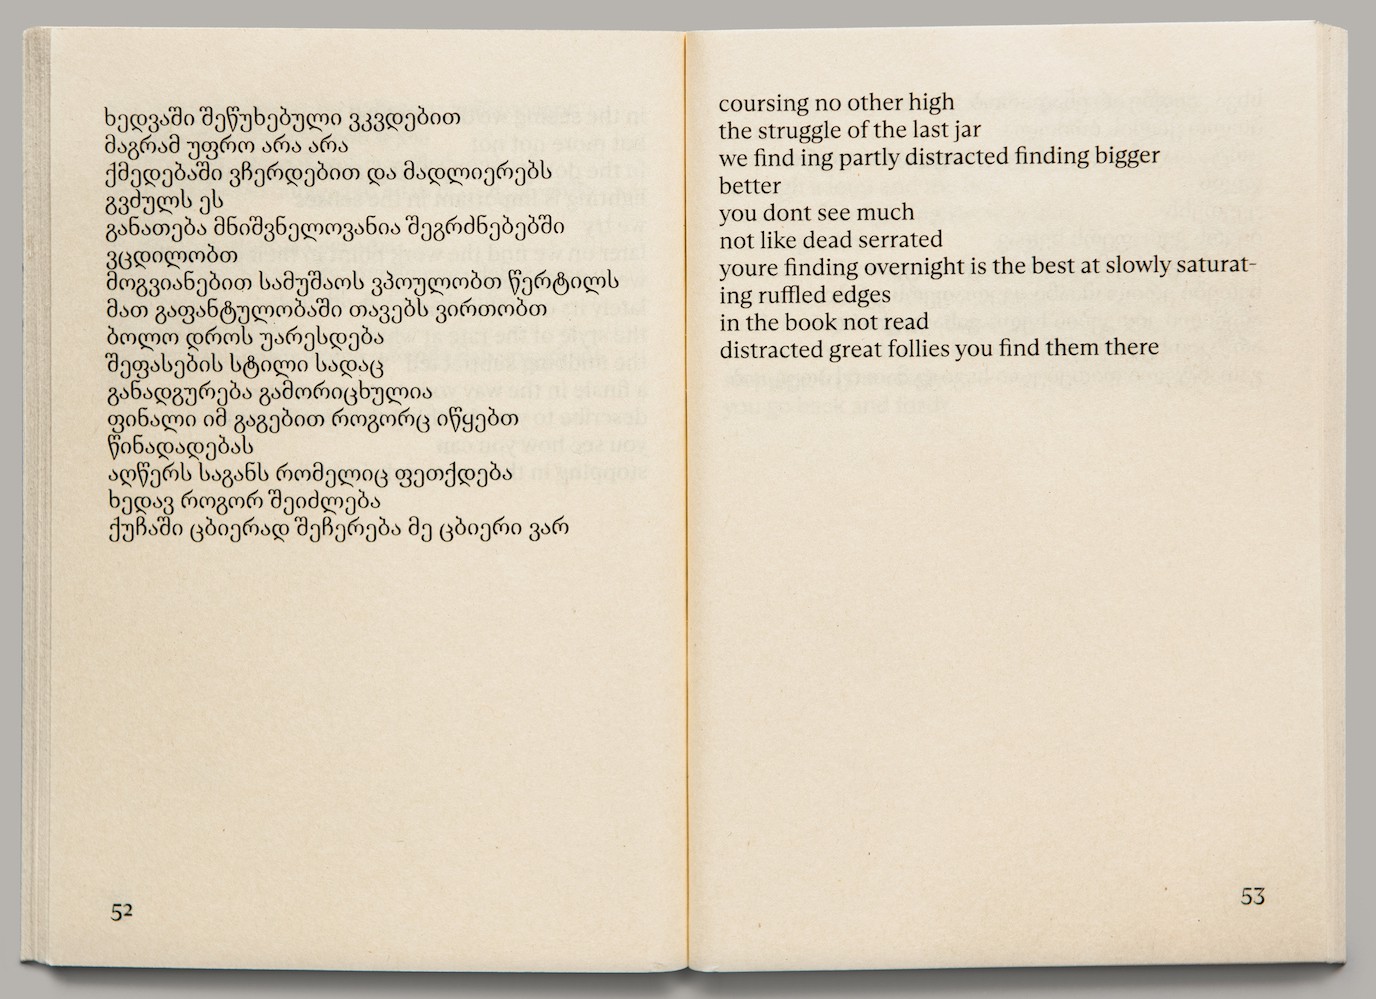 ხედვაში შეწუხებული ვკვდებით
მაგრამ უფრო არა არა
ქმედებაში ვჩერდებით და მადლიერებს
გვძულს ეს
განათება მნიშვნელოვანია შეგრძნებებში
ვცდილობთ
მოგვიანებით სამუშაოს ვპოულობთ წერტილს
მათ გაფანტულობაში თავებს ვირთობთ
ბოლო დროს უარესდება
შეფასების სტილი სადაც
განადგურება გამორიცხულია
ფინალი იმ გაგებით როგორც იწყებთ
წინადადებას
აღწერს საგანს რომელიც ფეთქდება
ხედავ როგორ შეიძლება
ქუჩაში ცბიერად შეჩერება მე ცბიერი ვარ
52
coursing no other high
the struggle of the last jar
we find ing partly distracted finding bigger
better
you dont see much
not like dead serrated
youre finding overnight is the best at slowly saturat-
ing ruffled edges
in the book not read
distracted great follies you find them there
53